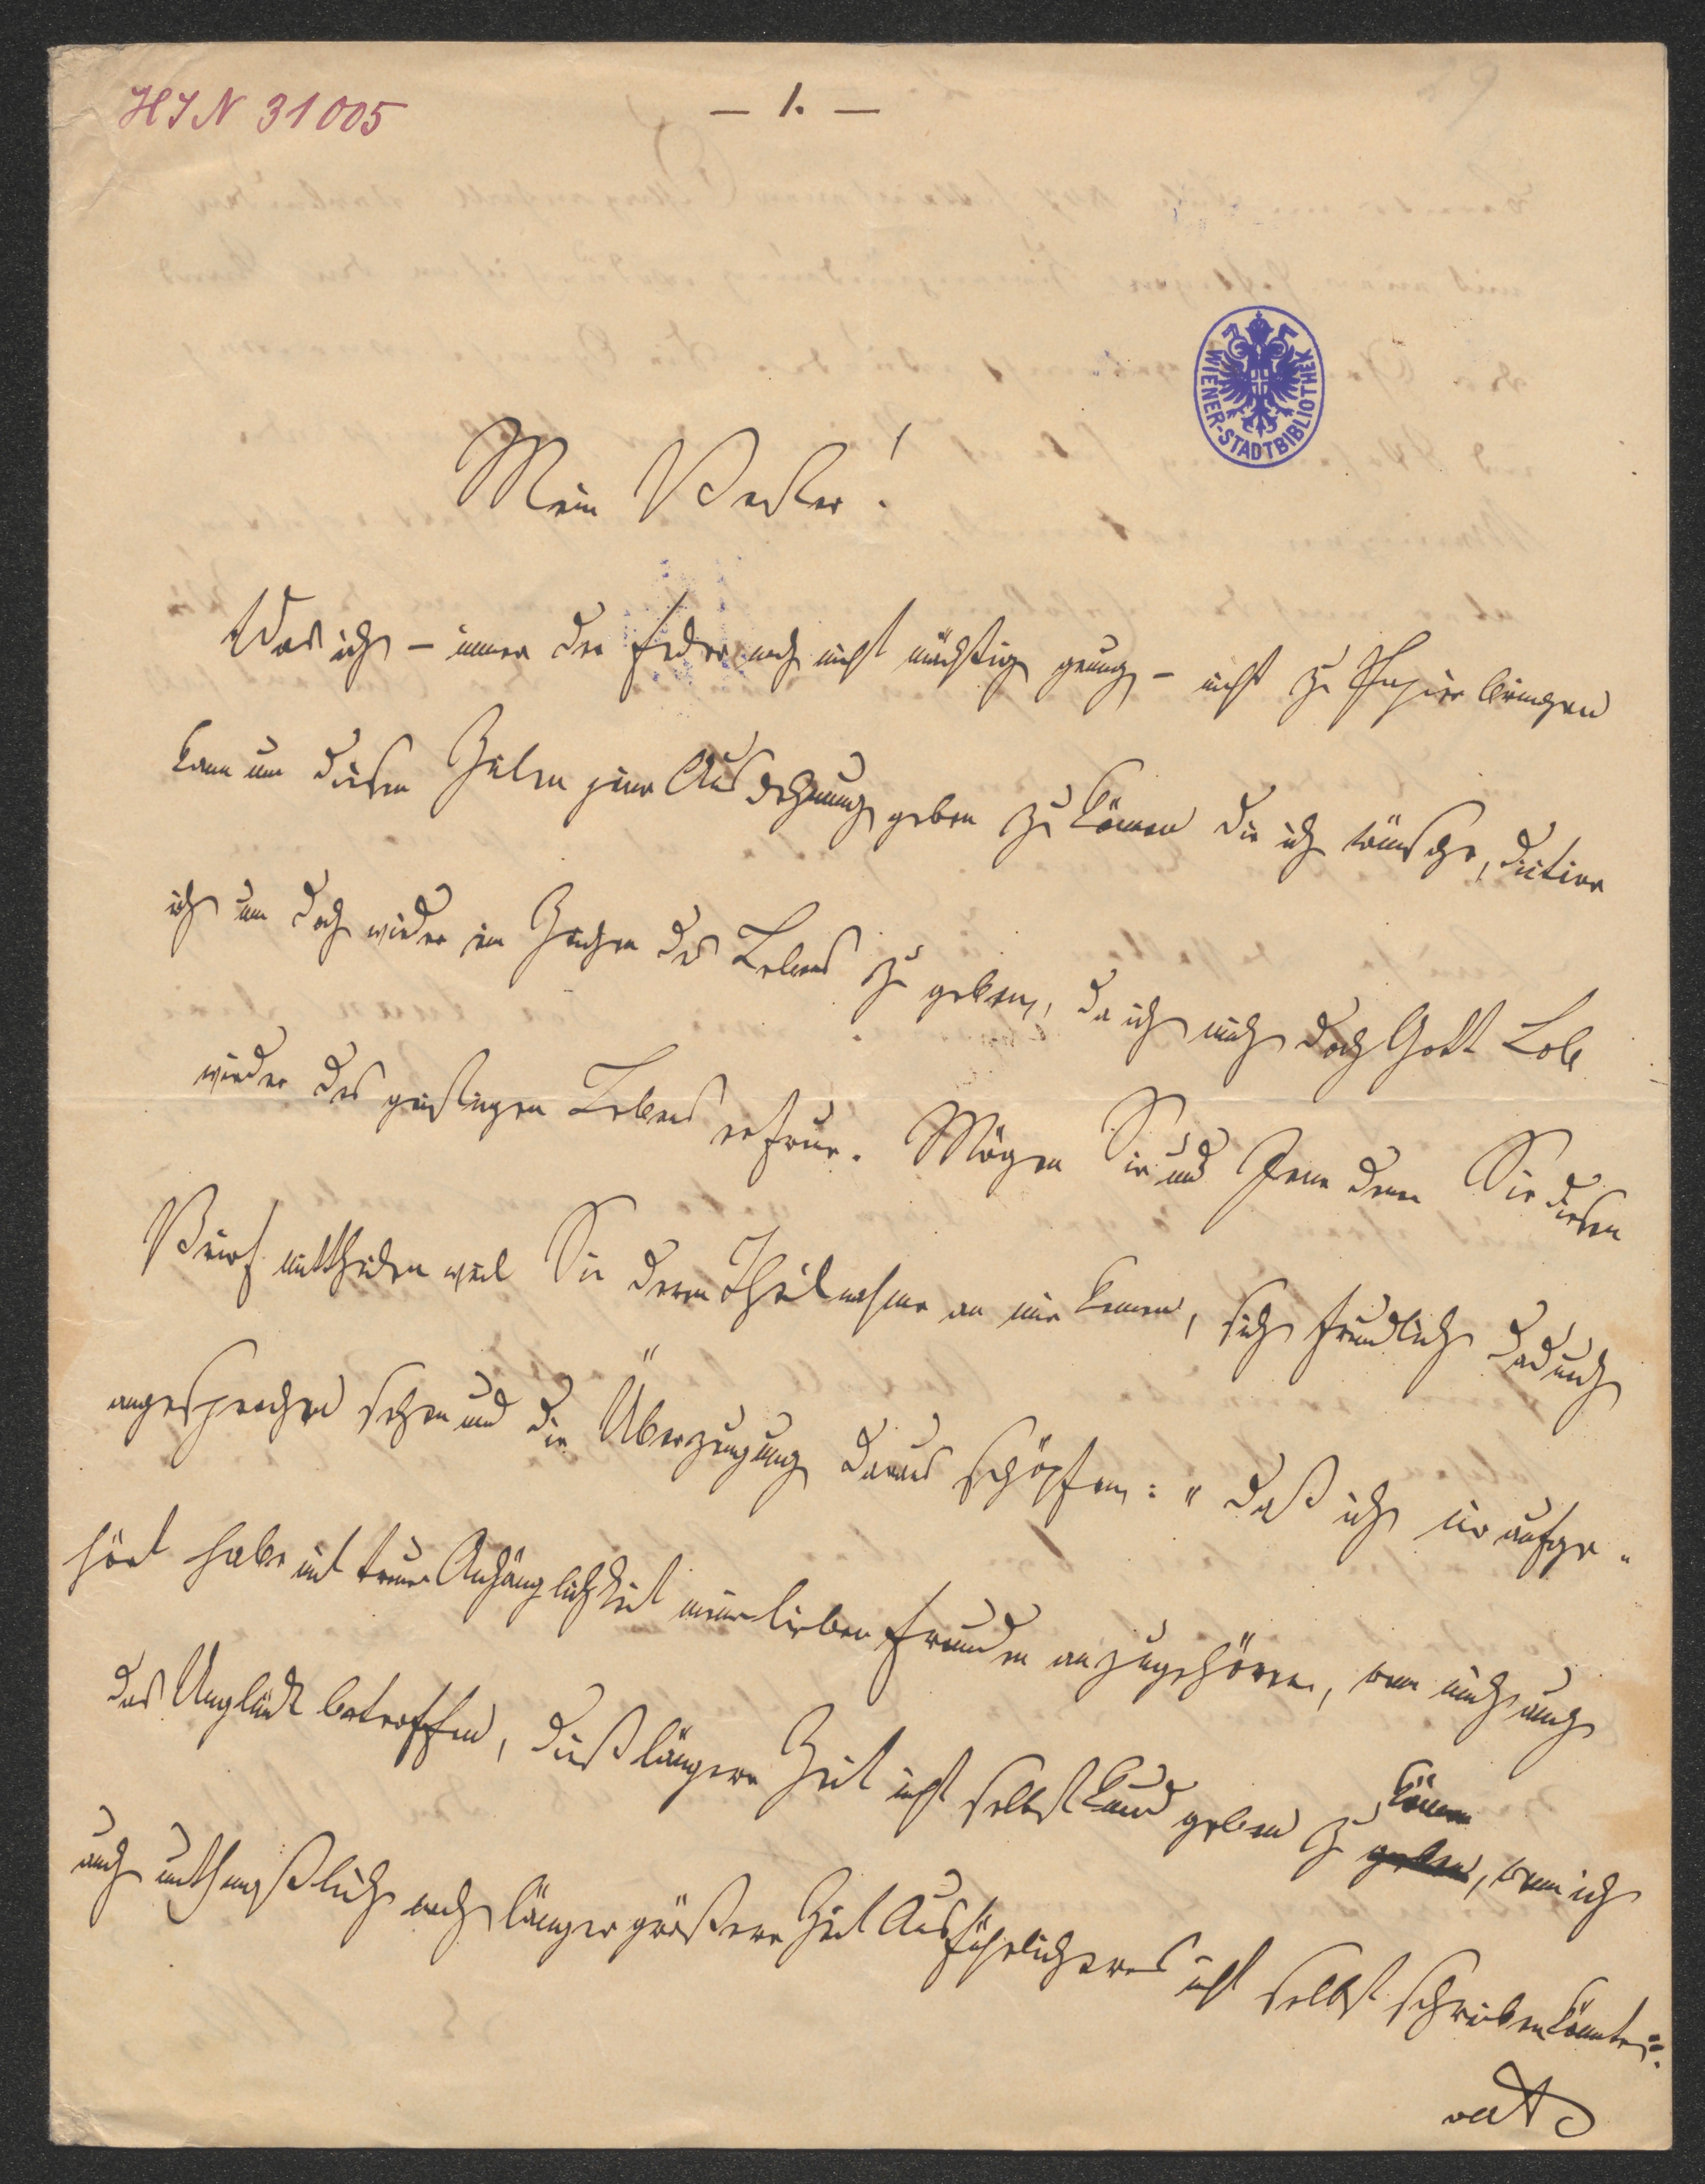 HIN 31005
— 1. —
WIENER-STADTBIBLIOTHEK
Mein Bester!
Was ich – immer der Feder noch nicht mächtig genug – nicht zu Papier bringen
kann um diesen Zeilen jene Ausdehnung geben zu können die ich wünsche, dictire
ich um doch wieder ein Zeichen des Lebens zu geben, da ich mich doch Gott Lob
wieder des geistigen Lebens erfreue. Mögen Sie und Jene denen Sie diesen
Brief mittheilen weil Sie deren Theilnahme an mir kennen, sich freundlich dadurch
angesprochen sehen und die Überzeugung daraus schöpfen: „daß ich nie aufge-
hört habe mit treuer Anhänglichkeit meinen lieben Freunden anzugehören, wenn mich auch
das Unglück betroffen, dieß längere Zeit nicht selbst kund geben zu können
geben, wenn ich
auch muthmaßlich noch länger größere Zeit Ausführlicheres nicht selbst schreiben könnte.